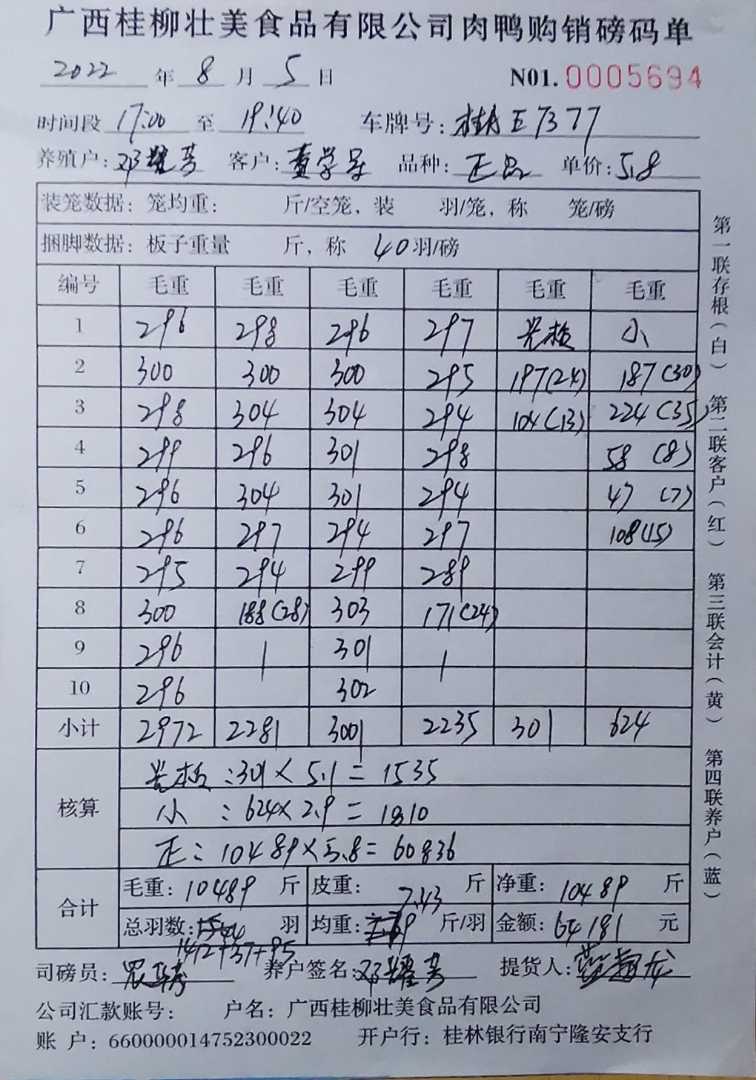 广西桂柳壮美食品有限公司肉鸭购销磅码单
2022 年 8 月 5 日 N01. 0005694
时间段 17:00 至 19:40 车牌号: 桂 E7377
养殖户: 邓耀芳 客户: 品种: 正品 单价: 5.8
装笼数据: 笼均重: 斤/空笼, 装 羽/笼, 称 笼/磅
捆脚数据: 板子重量 斤, 称 40 羽/磅
编号 毛重 毛重 毛重 毛重 毛重 毛重
1 296 298 296 297 小
2 300 300 300 295 197(24) 187(30)
3 298 304 304 294 104(13) 224(35)
4 299 296 301 298 58 (8)
5 296 304 301 294 47 (7)
6 296 297 294 297 108(15)
7 295 294 299 289
8 300 188(28) 303 171(24)
9 296 | 301 |
10 296 302
小计 2972 2281 3001 2235 301 624
核算
:301×5.1=1535
小:624×2.9=1810
正:10489×5.8=60836
合计
毛重: 10489 斤 皮重: 斤 净重: 10489 斤
7.43
总羽数: 羽 均重: 斤/羽 金额: 64181 元
1412+37+95
司磅员: 养户签名: 邓耀芳 提货人: 龙
公司汇款账号: 户名: 广西桂柳壮美食品有限公司
账 户: 660000014752300022 开户行: 桂林银行南宁隆安支行
第一联存根(白) 第二联客户(红) 第三联会计(黄) 第四联养户(蓝)